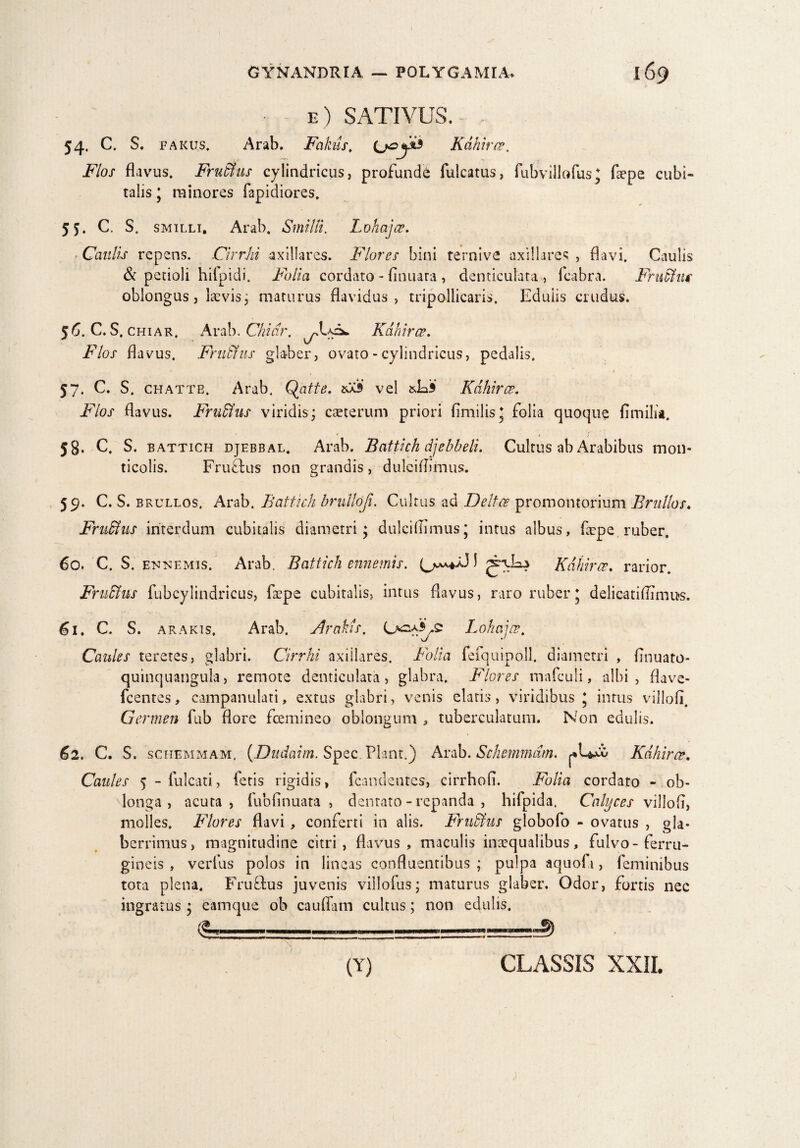 GYNANDRIA — POLYGAMIA. 169
E) SATIVUS.
54. C. S. FAKUS. Arab. Fakús. فقوص Káhiræ.
Flos flavus. Fructus cylindricus, profundè ſulcatus, ſubvilloſus; ſæpe cubi-
talis; minores ſapidiores.
55. C. S. SMILLI. Arab. Smilli. Lohajæ.
Caulis repens. Cirrhi axillares. Flores bini ternive axillares, flavi. Caulis
& petioli hiſpidi. Folia cordato-ſinuata, denticulata, ſcabra. Fructus
oblongus, lævis; maturus flavidus, tripollicaris. Edulis crudus.
56. C. S. CHIAR. Arab. Chiár. خيار Káhiræ.
Flos flavus. Fructus glaber, ovato-cylindricus, pedalis.
57. C. S. CHATTE. Arab. Qatte. قته vel قطه Káhiræ.
Flos flavus. Fructus viridis; cæterum priori ſimilis; folia quoque ſimilia.
58. C. S. BATTICH DJEBBAL. Arab. Battich djebbeli. Cultus ab Arabibus mon-
ticolis. Fructus non grandis, dulciſſimus.
59. C. S. BRULLOS. Arab. Battich brulloſi. Cultus ad Deltæ promontorium Brullos.
Fructus interdum cubitalis diametri; dulciſſimus; intus albus, ſæpe ruber.
60. C. S. ENNEMIS. Arab. Battich ennemis. بطيخ النمس Káhiræ. rarior.
Fructus ſubcylindricus, ſæpe cubitalis, intus flavus, raro ruber; delicatiſſimus.
61. C. S. ARAKIS. Arab. Arakís. Lohajæ.
Caules teretes, glabri. Cirrhi axillares. Folia ſeſquipoll. diametri, ſinuato-
quinquangula, remote denticulata, glabra. Flores maſculi, albi, flave-
ſcentes, campanulati, extus glabri, venis elatis, viridibus; intus villoſi.
Germen ſub flore fœmineo oblongum, tuberculatum. Non edulis.
62. C. S. SCHEMMAM. (Dudaim. Spec. Plant.) Arab. Schemmám. شمام Káhiræ.
Caules 5-ſulcati, ſetis rigidis, ſcandentes, cirrhoſi. Folia cordato-ob-
longa, acuta, ſubſinuata, dentato-repanda, hiſpida. Calyces villoſi,
molles. Flores flavi, conferti in alis. Fructus globoſo-ovatus, gla-
berrimus, magnitudine citri, flavus, maculis inæqualibus, fulvo-ferru-
gineis, verſus polos in lineas confluentibus; pulpa aquoſa, ſeminibus
tota plena. Fructus juvenis villoſus; maturus glaber. Odor, fortis nec
ingratus; eamque ob cauſſam cultus; non edulis.
(Y) CLASSIS XXII.